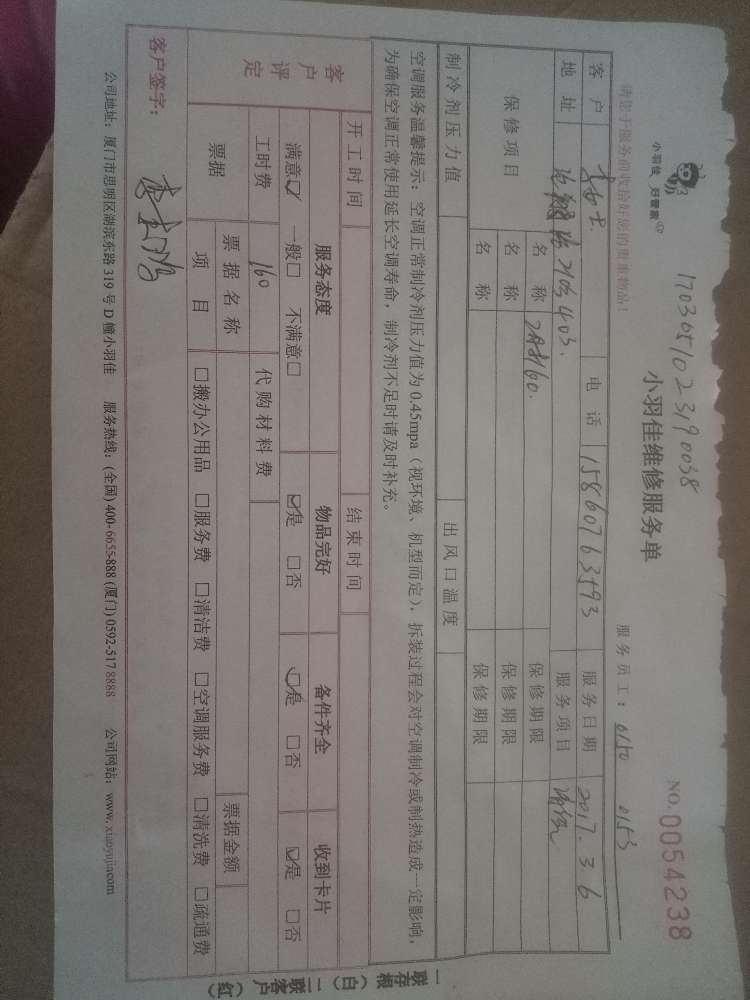 小羽佳 好管家
1703051023190038
小羽佳维修服务单
NO.0054238
请您于服务前收拾好您的贵重物品!
服务员工: 0150 0153
客户 李女士 电话 15860763593 服务日期 2017.3.6
地址 403. 服务项目
保修项目 名称 保修期限
名称 保修期限
名称 保修期限
制冷剂压力值 出风口温度
空调服务温馨提示:空调正常制冷剂压力值为0.45mpa(视环境、机型而定),拆装过程会对空调制冷或制热造成一定影响,
为确保空调正常使用延长空调寿命,制冷剂不足时请及时补充。
开工时间 结束时间
客户评定 服务态度 物品完好 备件齐全 收到卡片
满意☑ 一般□ 不满意□ ☑是 □否 ☑是 □否 ☑是 □否
工时费 160 代购材料费
票据 票据名称 票据金额
项目 □搬办公用品 □服务费 □清洁费 □空调服务费 □清洗费 □疏通费
客户签字:
公司地址:厦门市思明区湖滨东路319号D幢小羽佳 服务热线:(全国)400-6655-888 (厦门)0592-517 8888 公司网站:www.xiaoyujia.com
一联存根(白) 二联客户(红)